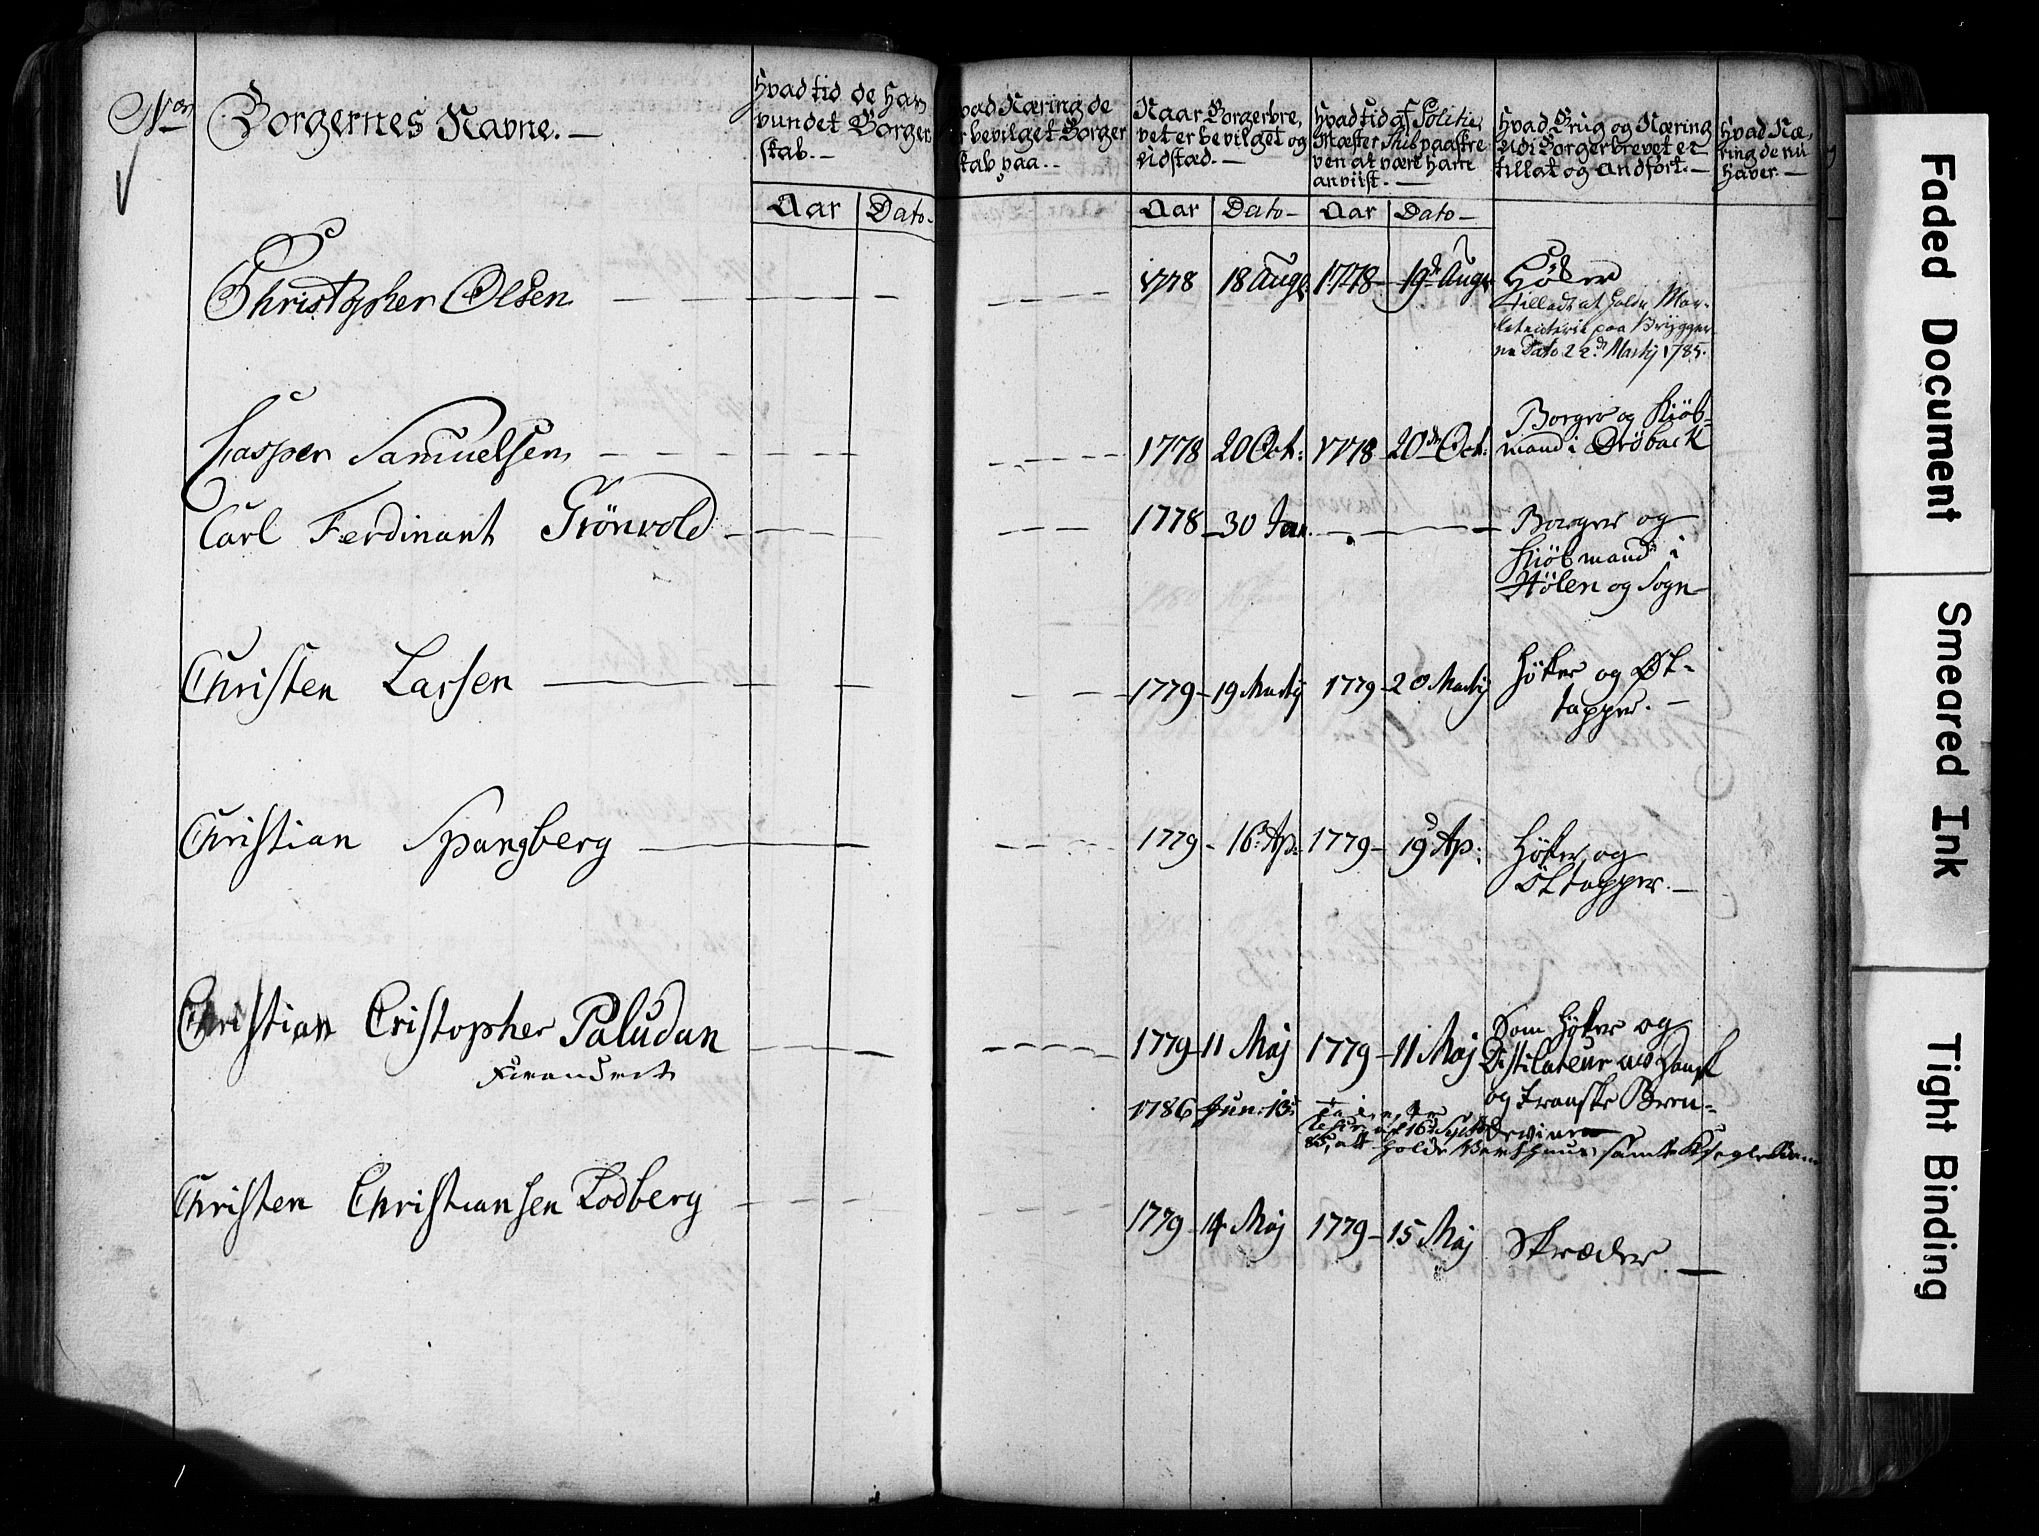 Nor
Borgernes Navne. —
Hvad tid de har
vundet Borger
skab. —
Aar Dato —
Hvad Næring de
er bevilget Borger
skab paa. —
Naar Borgerbre,
vet er bevilget og
udstæd. —
Aar Dato —
Hvad tid af Politie,
Mæster Skib paaskre
ven at være ham
anviist. —
Aar Dato —
Hvad Brug og Næring
udi Borgerbrevet er
tillat og Andført. —
Hvad Næ,
ring de nu
haver —
Christopher Olsen — — — 1778 18 Aug. 1778 — 19de Aug. Höker
tillads at holde Mar-
ketenterie paa Brygger
ne Dato 22de Martij 1785.
Casper Samuelsen — — — 1778 20 Oct: 1778 — 20de Oct: Borger og Kiöb-
mand i Dröback
Carl Ferdinant Grönvold — — — 1778 — 30 Jan. — — Borger og
Kiöbmand i
Hölen og Sogn —
Christen Larsen — — — 1779 — 19 Martij 1779 — 20 Martij Höker og Øl-
tapper. —
Christian Spangberg — — — 1779 — 16 Ap: 1779 — 19 Ap: Höker og
Öltapper. —
Christian Cristopher Paludan — — — 1779 — 11 Maj 1779 — 11 Maj Som Höker og
Distilateur av Dansk
og franske Bren-
1786 Jun: 13
devine
holde Vertshuus samt Kegle Bane
Christen Christiansen Lodberg — — — 1779 — 14 Maj 1779 — 15 Maj Skræder. —
Faded Document
Smeared Ink
Tight Binding